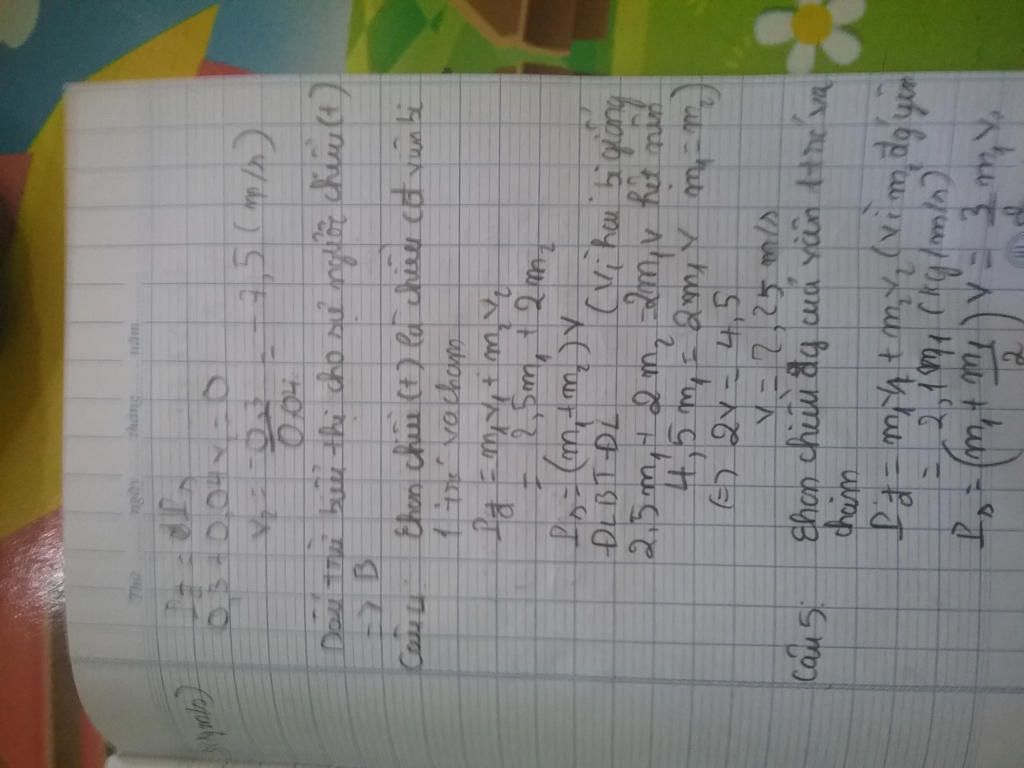 Thứ ngày tháng năm
(kg m/s)
Pt = Ps
0,3 + 0,04 v2 = 0
v2 = -0,3/0,04 = -7,5 (m/s)
Dấu trừ biểu thị cho sự ngược chiều (+)
-> B
Câu 4: Chọn chiều (+) là chiều cđ viên bi
1 trc va chạm
Pt = m1v1 + m2v2
= 2,5m1 + 2m2
Ps = (m1 + m2)v
ĐLBTĐL (vì hai bi giống
2,5m1 + 2m2 = 2m1v hệt nên
4,5m1 = 2m1v m1 = m2)
(=) 2v = 4,5
v = 2,25 m/s
Câu 5: Chọn chiều của viên 1 trc va
chạm
Pt = m1v1 + m2v2 (vì m2 đg yên
= 2,1m1 (kg/m/s)
Ps = (m1 + m1/2)v = 3/2 m1v